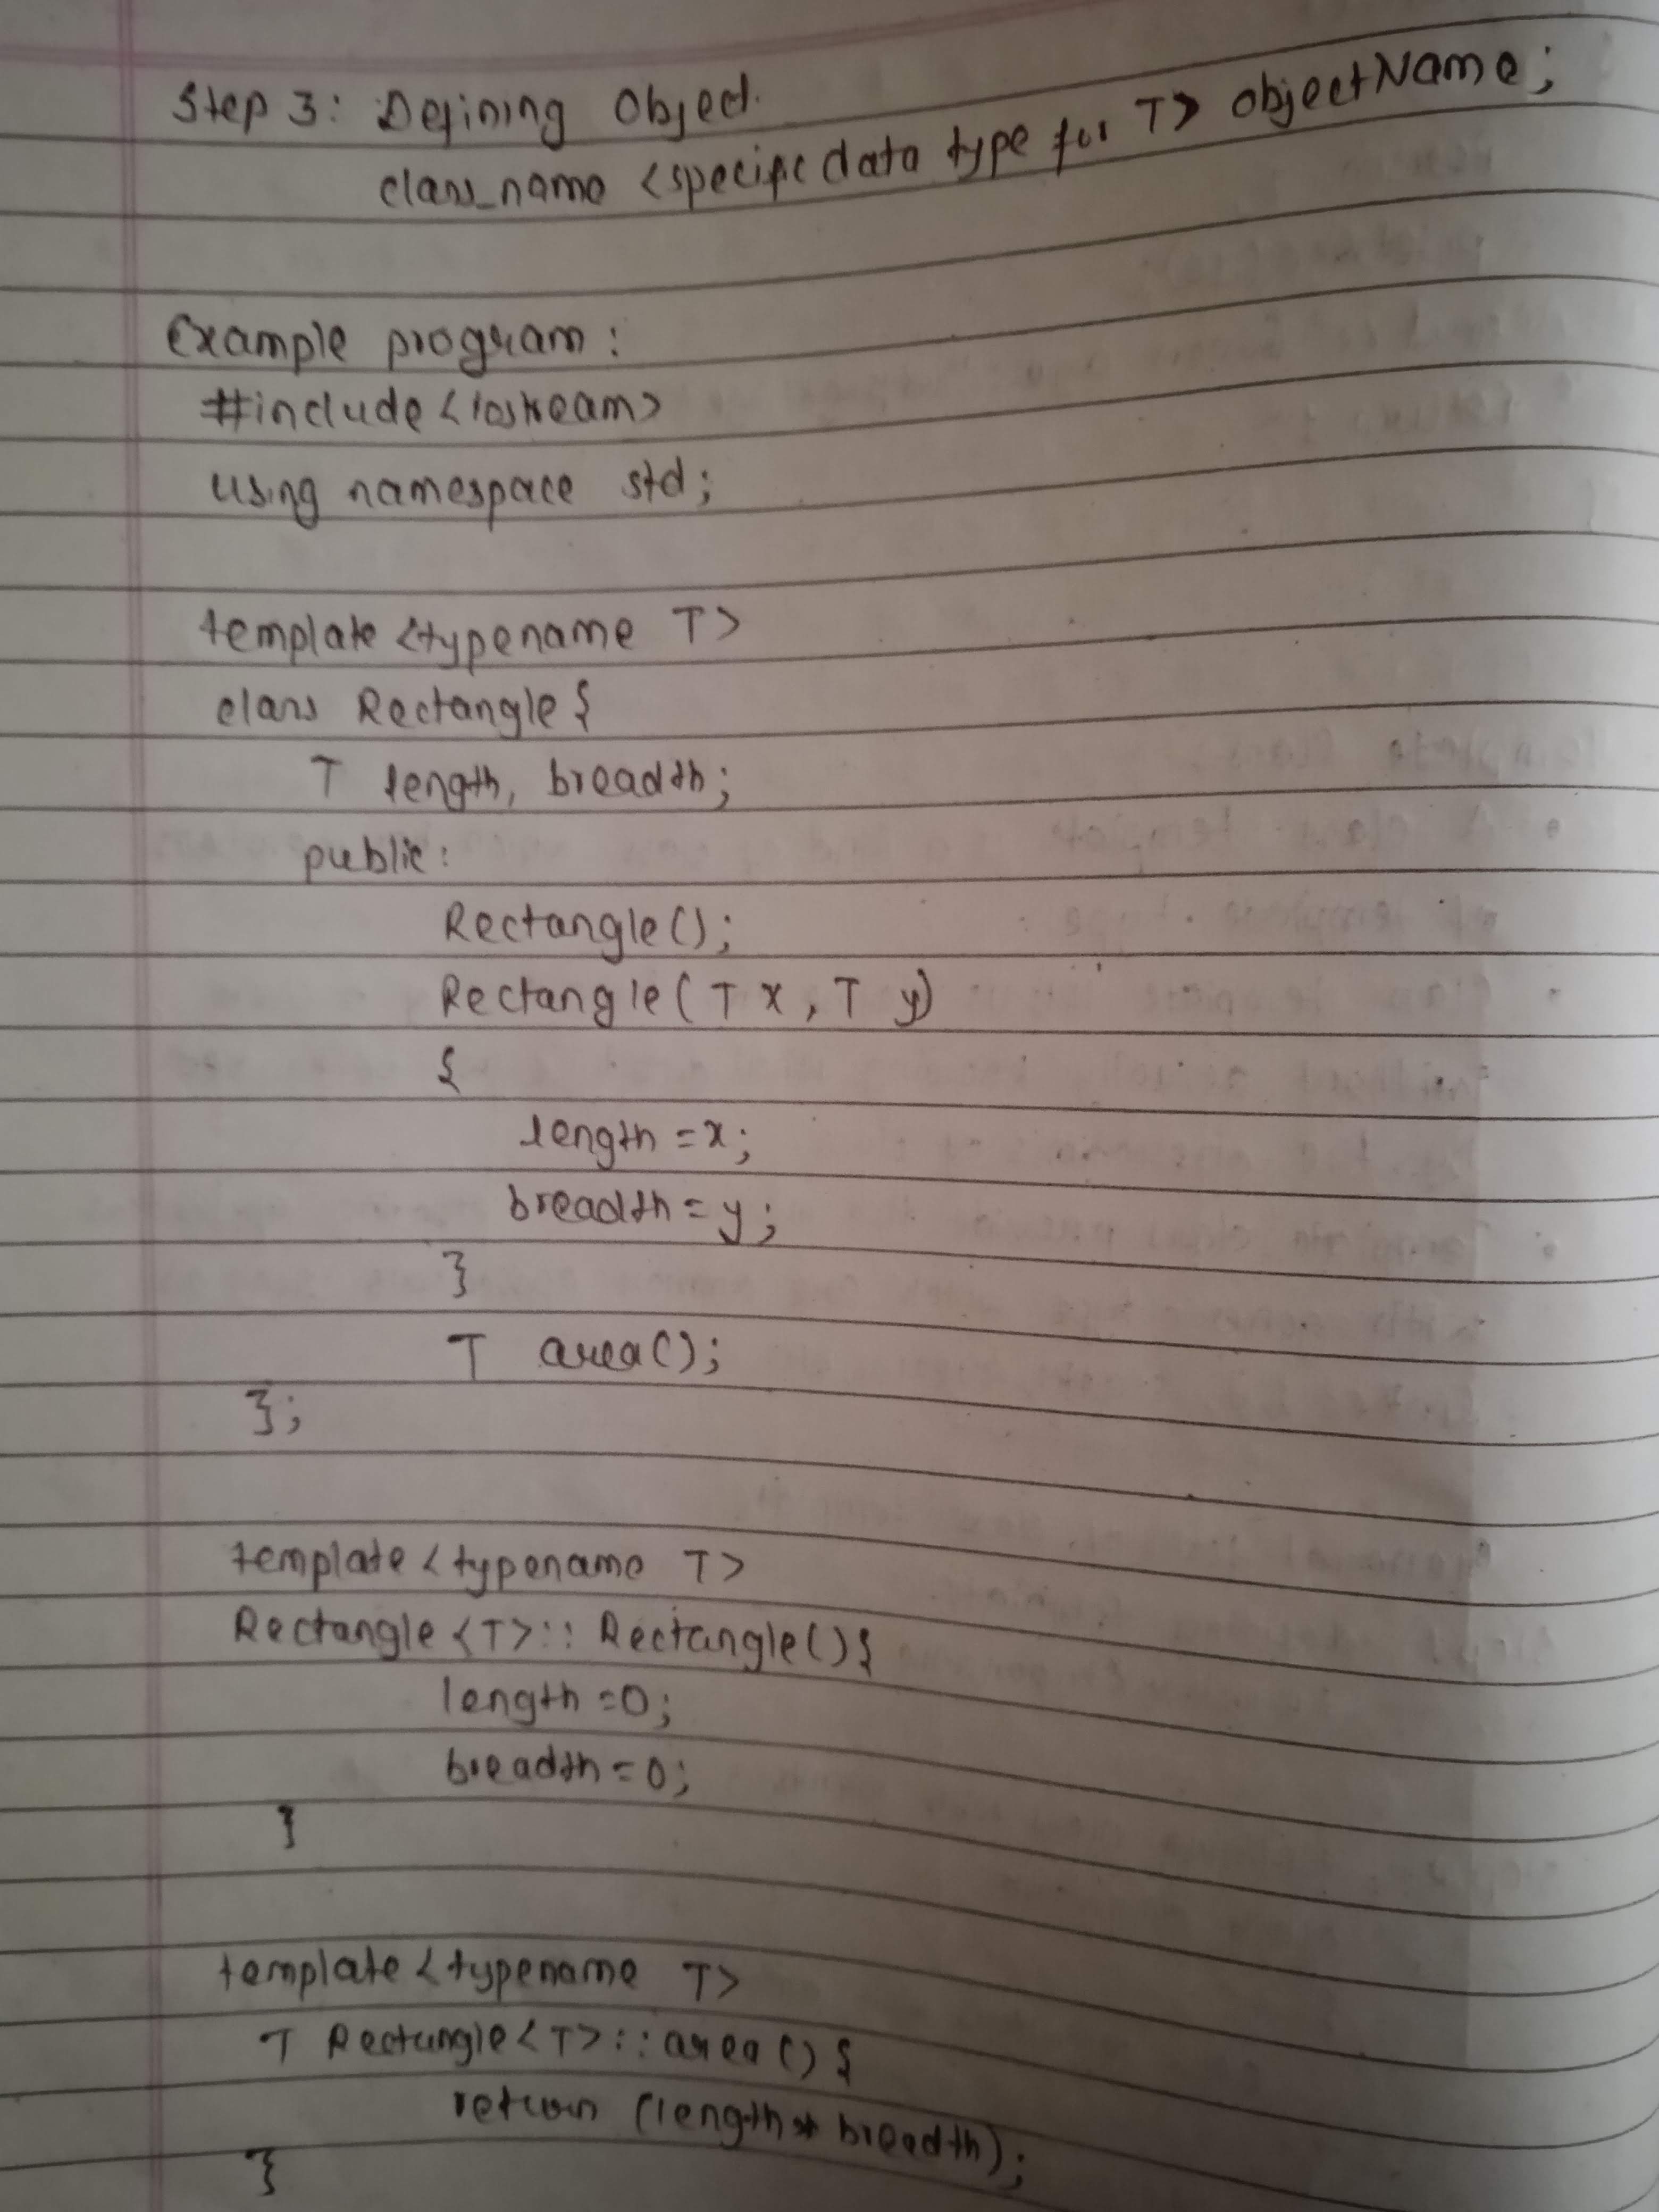 Step 3: Defining Object.
class_name <specific data type for T> objectName;
Example program:
#include <iostream>
using namespace std;
template <typename T>
class Rectangle {
T length, breadth;
public:
Rectangle();
Rectangle(T x, T y)
{
length = x;
breadth = y;
}
T area();
};
template <typename T>
Rectangle <T>:: Rectangle() {
length = 0;
breadth = 0;
}
template <typename T>
T Rectangle <T>:: area() {
return (length * breadth);
}